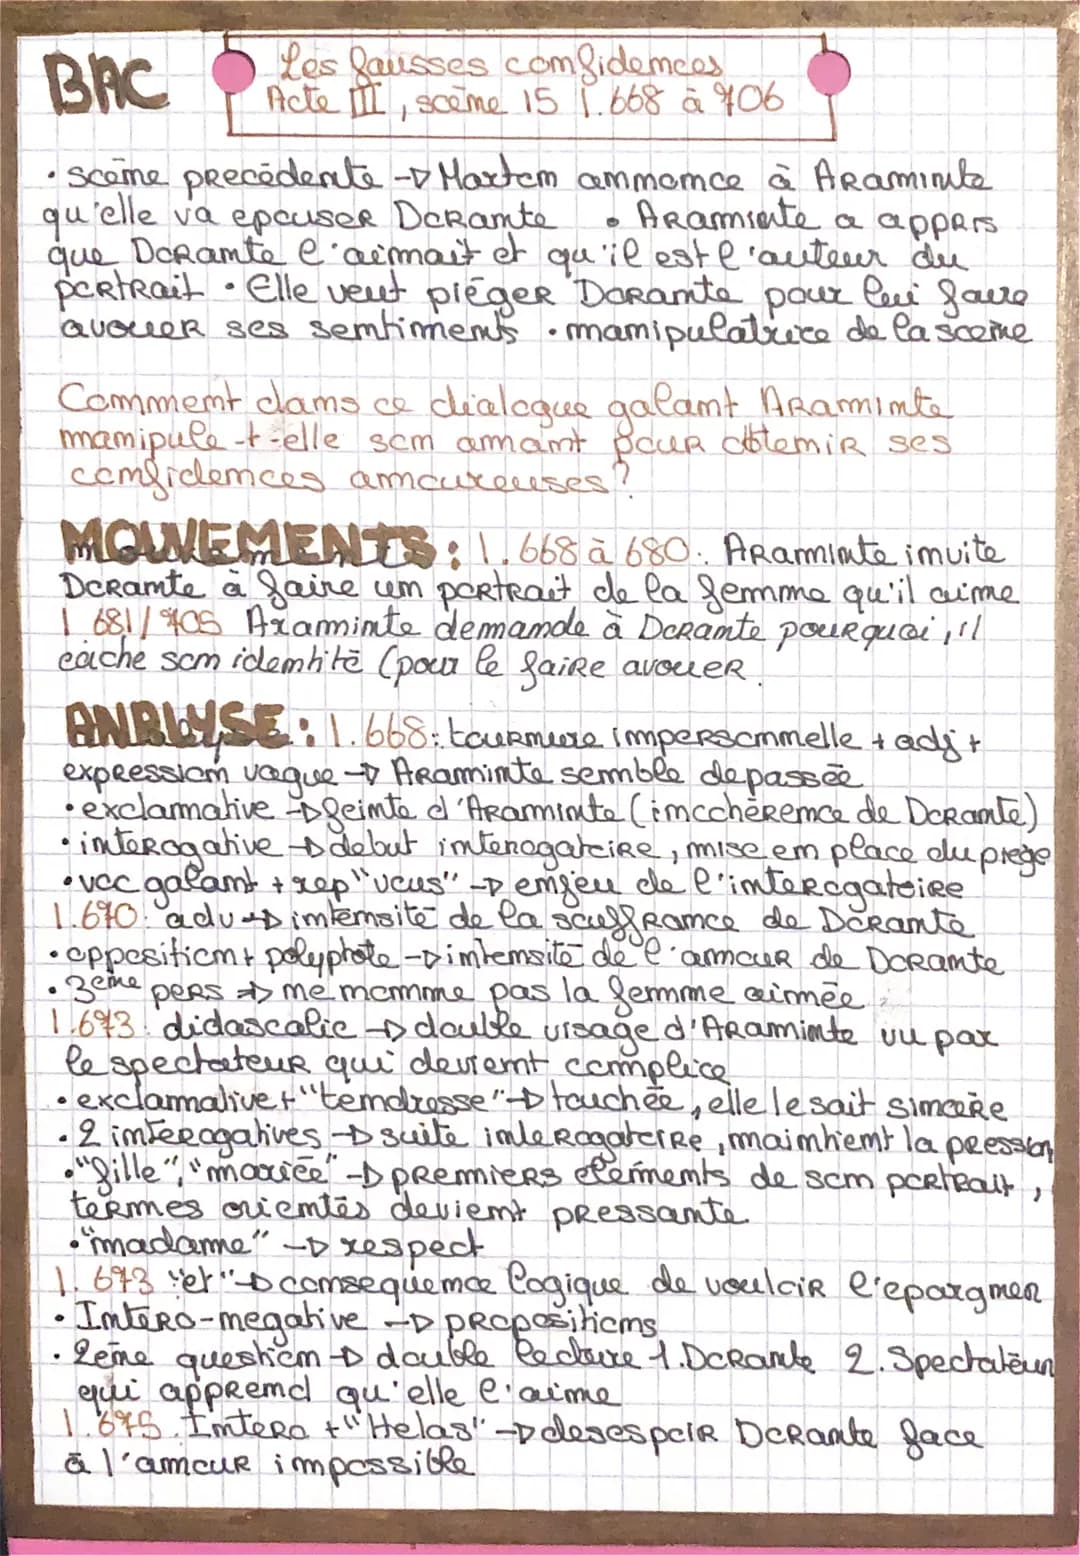 BAC
Les fausses confidences
Acte III, scène 15 l.668 à 706
• scène precédente → Marton annonce à Araminte
qu'elle va epouser Dorante • Araminte a appris
que Dorante l'aimait et qu'il est l'auteur du
portrait • Elle veut piéger Dorante pour lui faire
avouer ses sentiments • manipulatrice de la scène
Comment dans ce dialogue galant Araminte
manipule-t-elle son amant pour obtenir ses
confidences amoureuses?
MOUVEMENTS : l.668 à 680 : Araminte invite
Dorante à faire un portrait de la femme qu'il aime
l 681/705 Araminte demande à Dorante pourquoi, il
cache son identité (pour le faire avouer.
ANALYSE : l.668 : tournure impersonnelle + adj +
expression vague → Araminte semble depassée
• exclamative → feinte d'Araminte (incohérence de Dorante)
• interogative → debut interogatoire, mise en place du piege
• voc galant + rep "vous" → enjeu de l'interogatoire
l.670 : adv → intensité de la souffrance de Dorante
• opposition + polyptote → intensité de l'amour de Dorante
• 3eme pers → ne nomme pas la femme aimée
l.673 : didascalie → double visage d'Araminte vu par
le spectateur qui devient complice
• exclamative + "tendresse" → touchée, elle le sait sincère
• 2 interogatives → suite interogatoire, maintient la pression
• "fille", "mariée" → premiers elements de son portrait,
termes orientés devient pressante
• "madame" → respect
l. 673 "et" → consequence logique de vouloir l'epargner
• Intero-negative → propositions
• 2ème question → double lecture 1.Dorante 2.Spectateur
qui apprend qu'elle l'aime
l.675 . Intero + "Helas" → desespoir Dorante face
à l'amour impossible